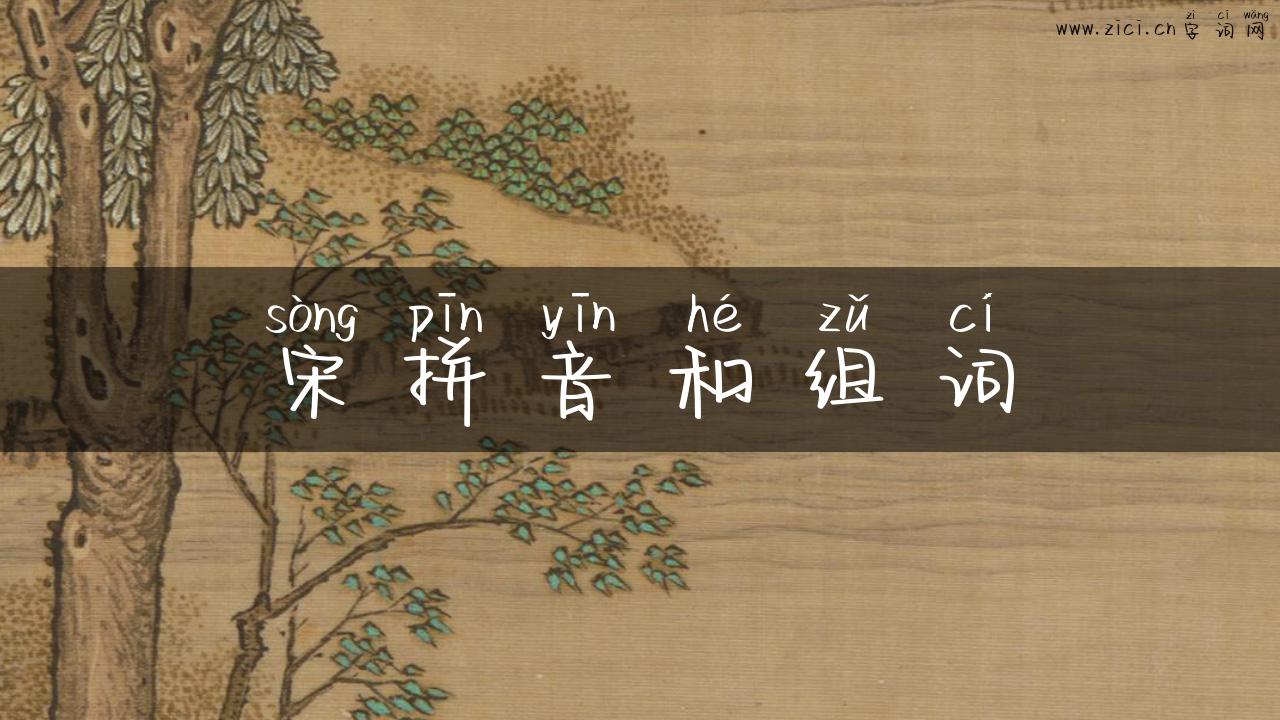 zì cí wǎng
www.zici.cn 字词网
sòng pīn yīn hé zǔ cí
宋拼音和组词